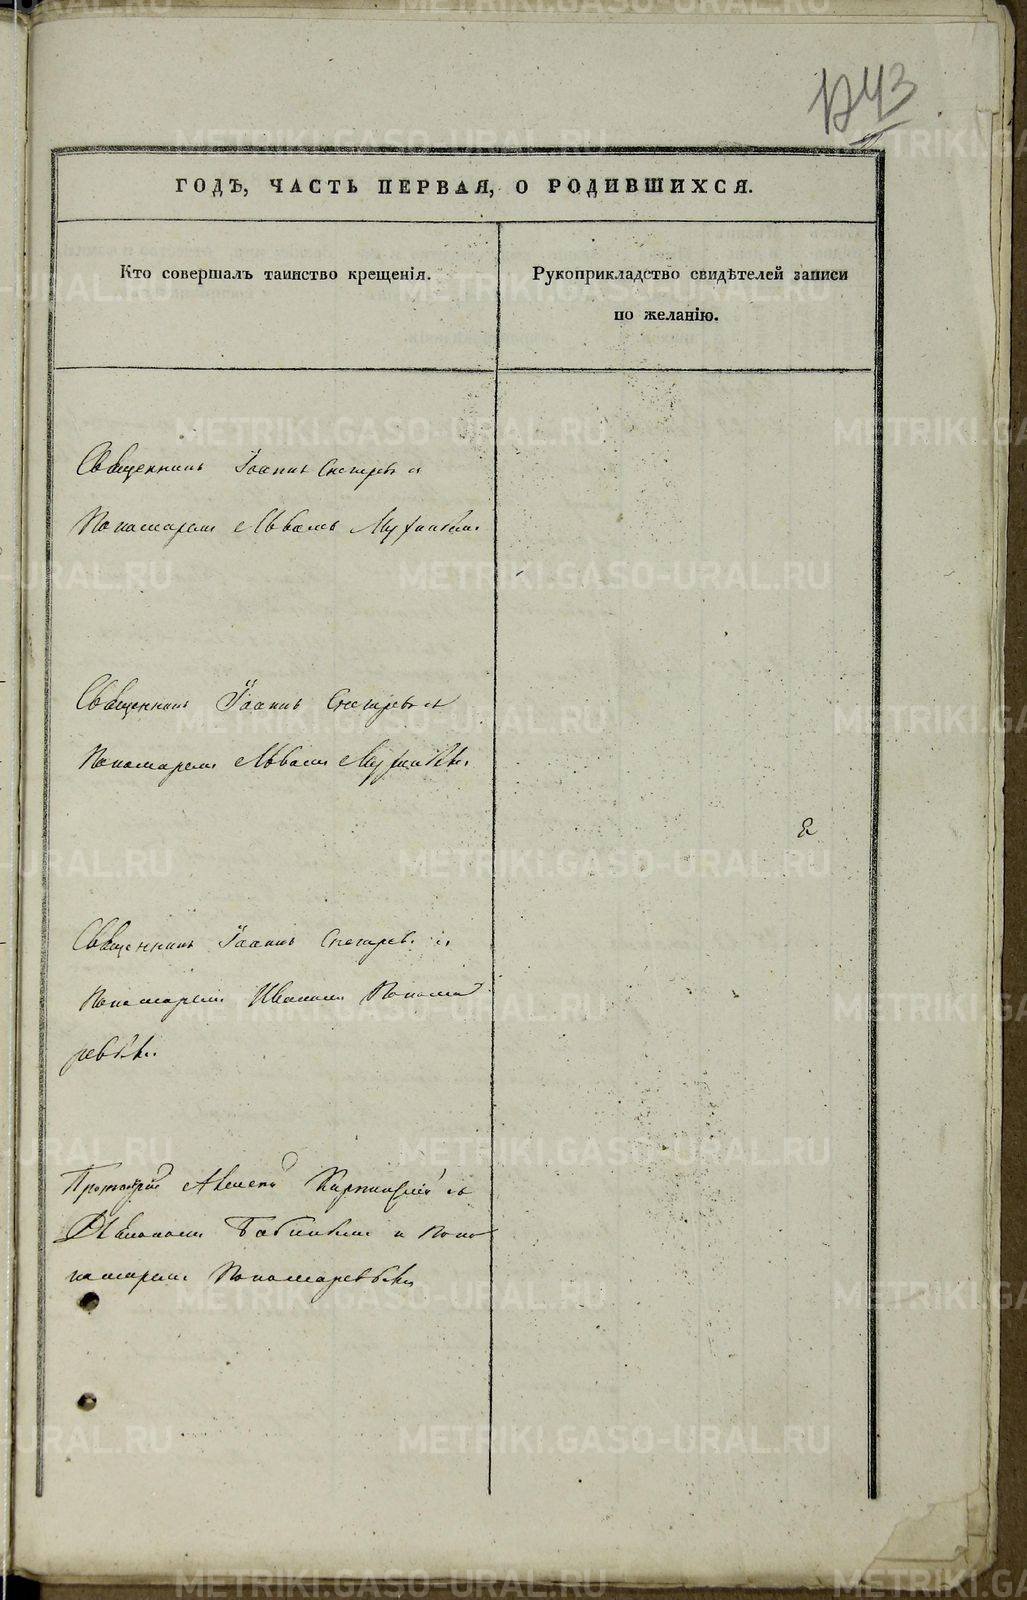 ГОДЪ, ЧАСТЬ ПЕРВАЯ, О РОДИВШИХСЯ.
Кто совершалъ таинство крещенія.
Рукоприкладство свидѣтелей записи
по желанію.
Священникъ Іоаннъ Снегиревъ съ
Пономаремъ Львомъ
Священникъ Іоаннъ Снегиревъ съ
Пономаремъ Львомъ
Священникъ Іоаннъ Снегиревъ съ
Пономаремъ Иваномъ Понома
ревымъ.
Протоіерей Алексій Карпинскій съ
Діакономъ и Поно
маремъ Пономаревымъ
METRIKI.GASO-URAL.RU